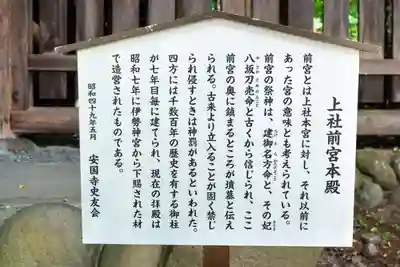 上社前宮本殿
前宮とは上社本宮に対し、それ以前に
あった宮の意味とも考えられている。
前宮の祭神は、建御名方命と、その妃
八坂刀売命と古くから信じられ、ここ
前宮の奥に鎮まるところが墳墓と伝え
られる。古来より立入ることが固く禁じ
られ侵すときは神罰があるといわれた。
四方には千数百年の歴史を有する御柱
が七年目毎に建てられ、現在の拝殿は
昭和七年に伊勢神宮から下賜された材
で造営されたものである。
昭和四十九年五月
安国寺史友会